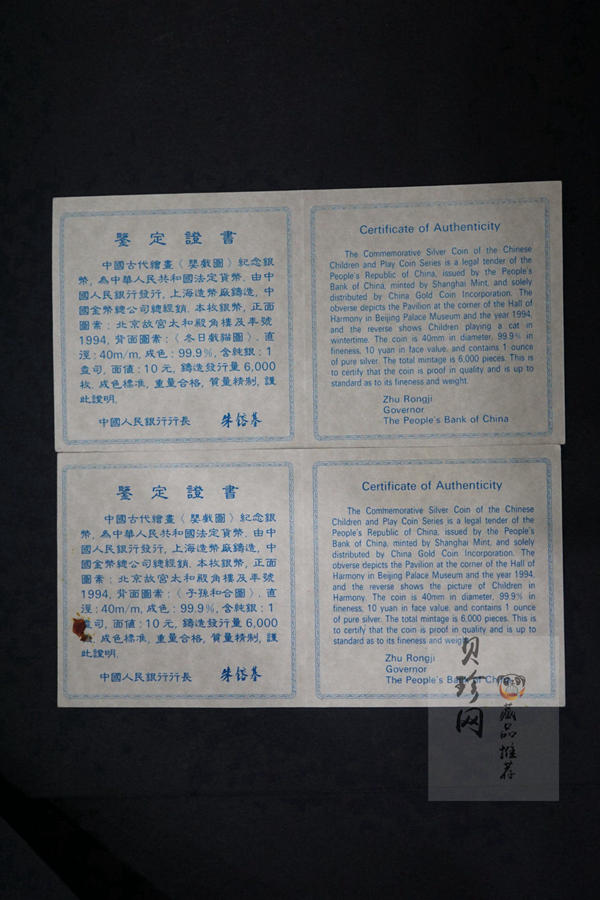 鑒定證書
中國古代繪畫〈嬰戲圖〉紀念銀
幣, 為中華人民共和國法定貨幣. 由中
國人民銀行發行, 上海造幣廠鑄造, 中
國金幣總公司總經銷. 本枚銀幣, 正面
圖案: 北京故宮太和殿角樓及年號
1994, 背面圖案:〈冬日戲貓圖〉. 直
徑: 40m/m, 成色: 99.9%, 含純銀: 1
盎司, 面值: 10元, 鑄造發行量 6,000
枚. 成色標准, 重量合格, 質量精制, 謹
此證明.
中國人民銀行行長 朱鎔基
Certificate of Authenticity
The Commemorative Silver Coin of the Chinese
Children and Play Coin Series is a legal tender of the
People's Republic of China, issued by the People's
Bank of China, minted by Shanghai Mint, and solely
distributed by China Gold Coin Incorporation. The
obverse depicts the Pavilion at the corner of the Hall of
Harmony in Beijing Palace Museum and the year 1994,
and the reverse shows Children playing a cat in
wintertime. The coin is 40mm in diameter, 99.9% in
fineness, 10 yuan in face value, and contains 1 ounce
of pure silver. The total mintage is 6,000 pieces. This is
to certify that the coin is proof in quality and is up to
standard as to its fineness and weight.
Zhu Rongji
Governor
The People's Bank of China
鑒定證書
中國古代繪畫〈嬰戲圖〉紀念銀
幣, 為中華人民共和國法定貨幣. 由中
國人民銀行發行, 上海造幣廠鑄造, 中
國金幣總公司總經銷. 本枚銀幣, 正面
圖案: 北京故宮太和殿角樓及年號
1994, 背面圖案:〈子孫和合圖〉. 直
徑: 40m/m, 成色: 99.9%, 含純銀: 1
盎司, 面值: 10元, 鑄造發行量 6,000
成色標准, 重量合格, 質量精制, 謹
此證明.
中國人民銀行行長 朱鎔基
Certificate of Authenticity
The Commemorative Silver Coin of the Chinese
Children and Play Coin Series is a legal tender of the
People's Republic of China, issued by the People's
Bank of China, minted by Shanghai Mint, and solely
distributed by China Gold Coin Incorporation. The
obverse depicts the Pavilion at the corner of the Hall of
Harmony in Beijing Palace Museum and the year 1994,
and the reverse shows the picture of Children in
Harmony. The coin is 40mm in diameter, 99.9% in
fineness, 10 yuan in face value, and contains 1 ounce
of pure silver. The total mintage is 6,000 pieces. This is
to certify that the coin is proof in quality and is up to
standard as to its fineness and weight.
Zhu Rongji
Governor
The People's Bank of China
贝珍网
藏品推荐